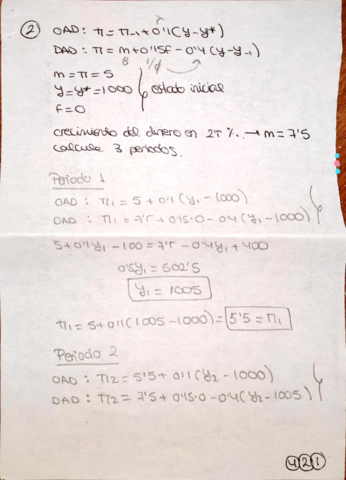 ② OAD: π = π₋₁ + 0'1 (y - y*)
DAD: π = m + 0'15f - 0'4 (y - y₋₁)
m = π = 5
y = y* = 1000 } estado inicial
f = 0
crecimiento del dinero en 2'5 %. → m = 7'5
calcule 3 periodos.
Periodo 1
OAD: π₁ = 5 + 0'1 (y₁ - 1000)
DAD: π₁ = 7'5 + 0'15·0 - 0'4 (y₁ - 1000)
5 + 0'1y₁ - 100 = 7'5 - 0'4y₁ + 400
0'5y₁ = 502'5
y₁ = 1005
π₁ = 5 + 0'1 (1005 - 1000) = 5'5 = π₁
Periodo 2
OAD: π₂ = 5'5 + 0'1 (y₂ - 1000)
DAD: π₂ = 7'5 + 0'15·0 - 0'4 (y₂ - 1005)
421